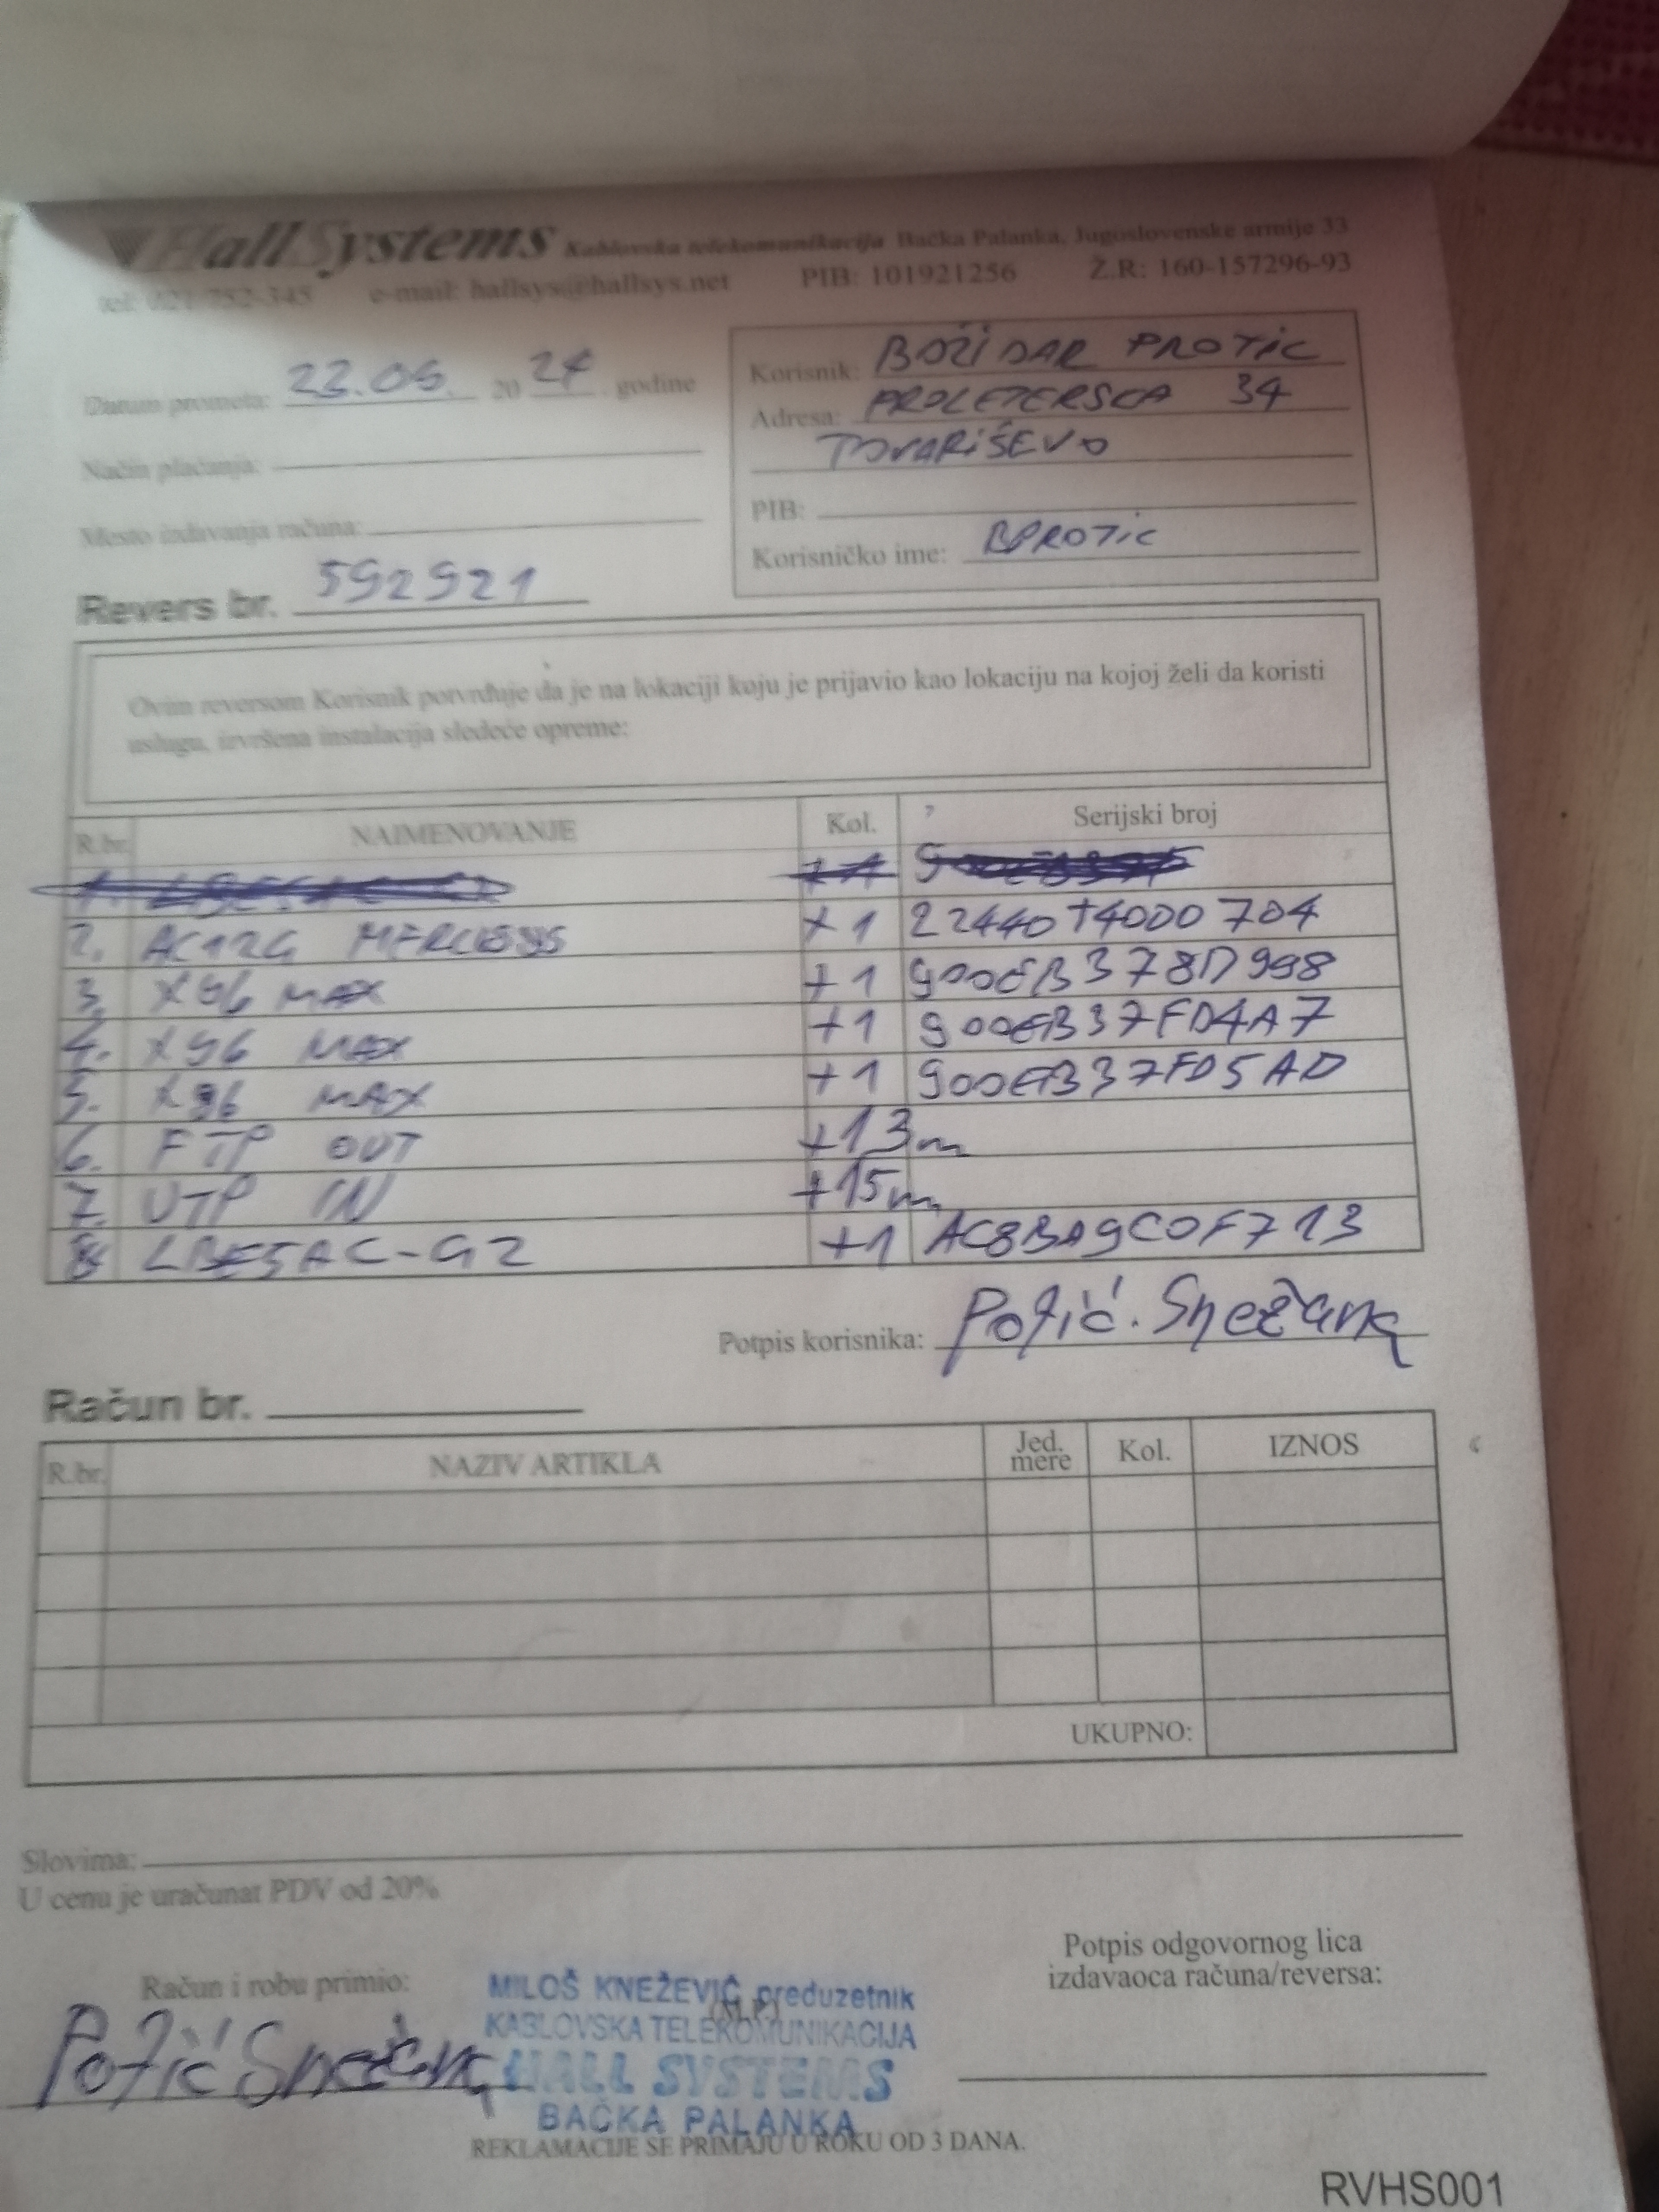 Hall Systems Kablovska telekomunikacija Bačka Palanka, Jugoslovenske armije 33
tel: 021-752-345 e-mail: hallsys@hallsys.net PIB: 101921256 Ž.R: 160-157296-93
Datum prometa: 22.05. 2024 godine
Način plaćanja:
Mesto izdavanja računa:
Revers br. 592921
Korisnik: BOŽIDAR PROTIC
Adresa: PROLETERSCA 34
TOVARIŠEVO
PIB:
Korisničko ime: BPROTIC
Ovim reversom Korisnik potvrđuje da je na lokaciji koju je prijavio kao lokaciju na kojoj želi da koristi
uslugu, izvršena instalacija sledeće opreme:
R.br. NAIMENOVANJE Kol. Serijski broj
2. AC12G MERCUSYS +1 22440T4000704
3. X96 MAX +1 900EB378D998
4. X96 MAX +1 900EB37FD4A7
5. X96 MAX +1 900EB37FD5AD
6. FTP OUT +13m
7. UTP IN +15m
8. LBE5AC-G2 +1 AC8BA9C0F713
Potpis korisnika: Potić. Snežana
Račun br.
R.br. NAZIV ARTIKLA Jed. mere Kol. IZNOS
UKUPNO:
Slovima:
U cenu je uračunat PDV od 20%
Račun i robu primio:
Potić Snežana
MILOŠ KNEŽEVIĆ preduzetnik
(M.P.)
KABLOVSKA TELEKOMUNIKACIJA
HALL SYSTEMS
BAČKA PALANKA
Potpis odgovornog lica
izdavaoca računa/reversa:
REKLAMACIJE SE PRIMAJU U ROKU OD 3 DANA.
RVHS001